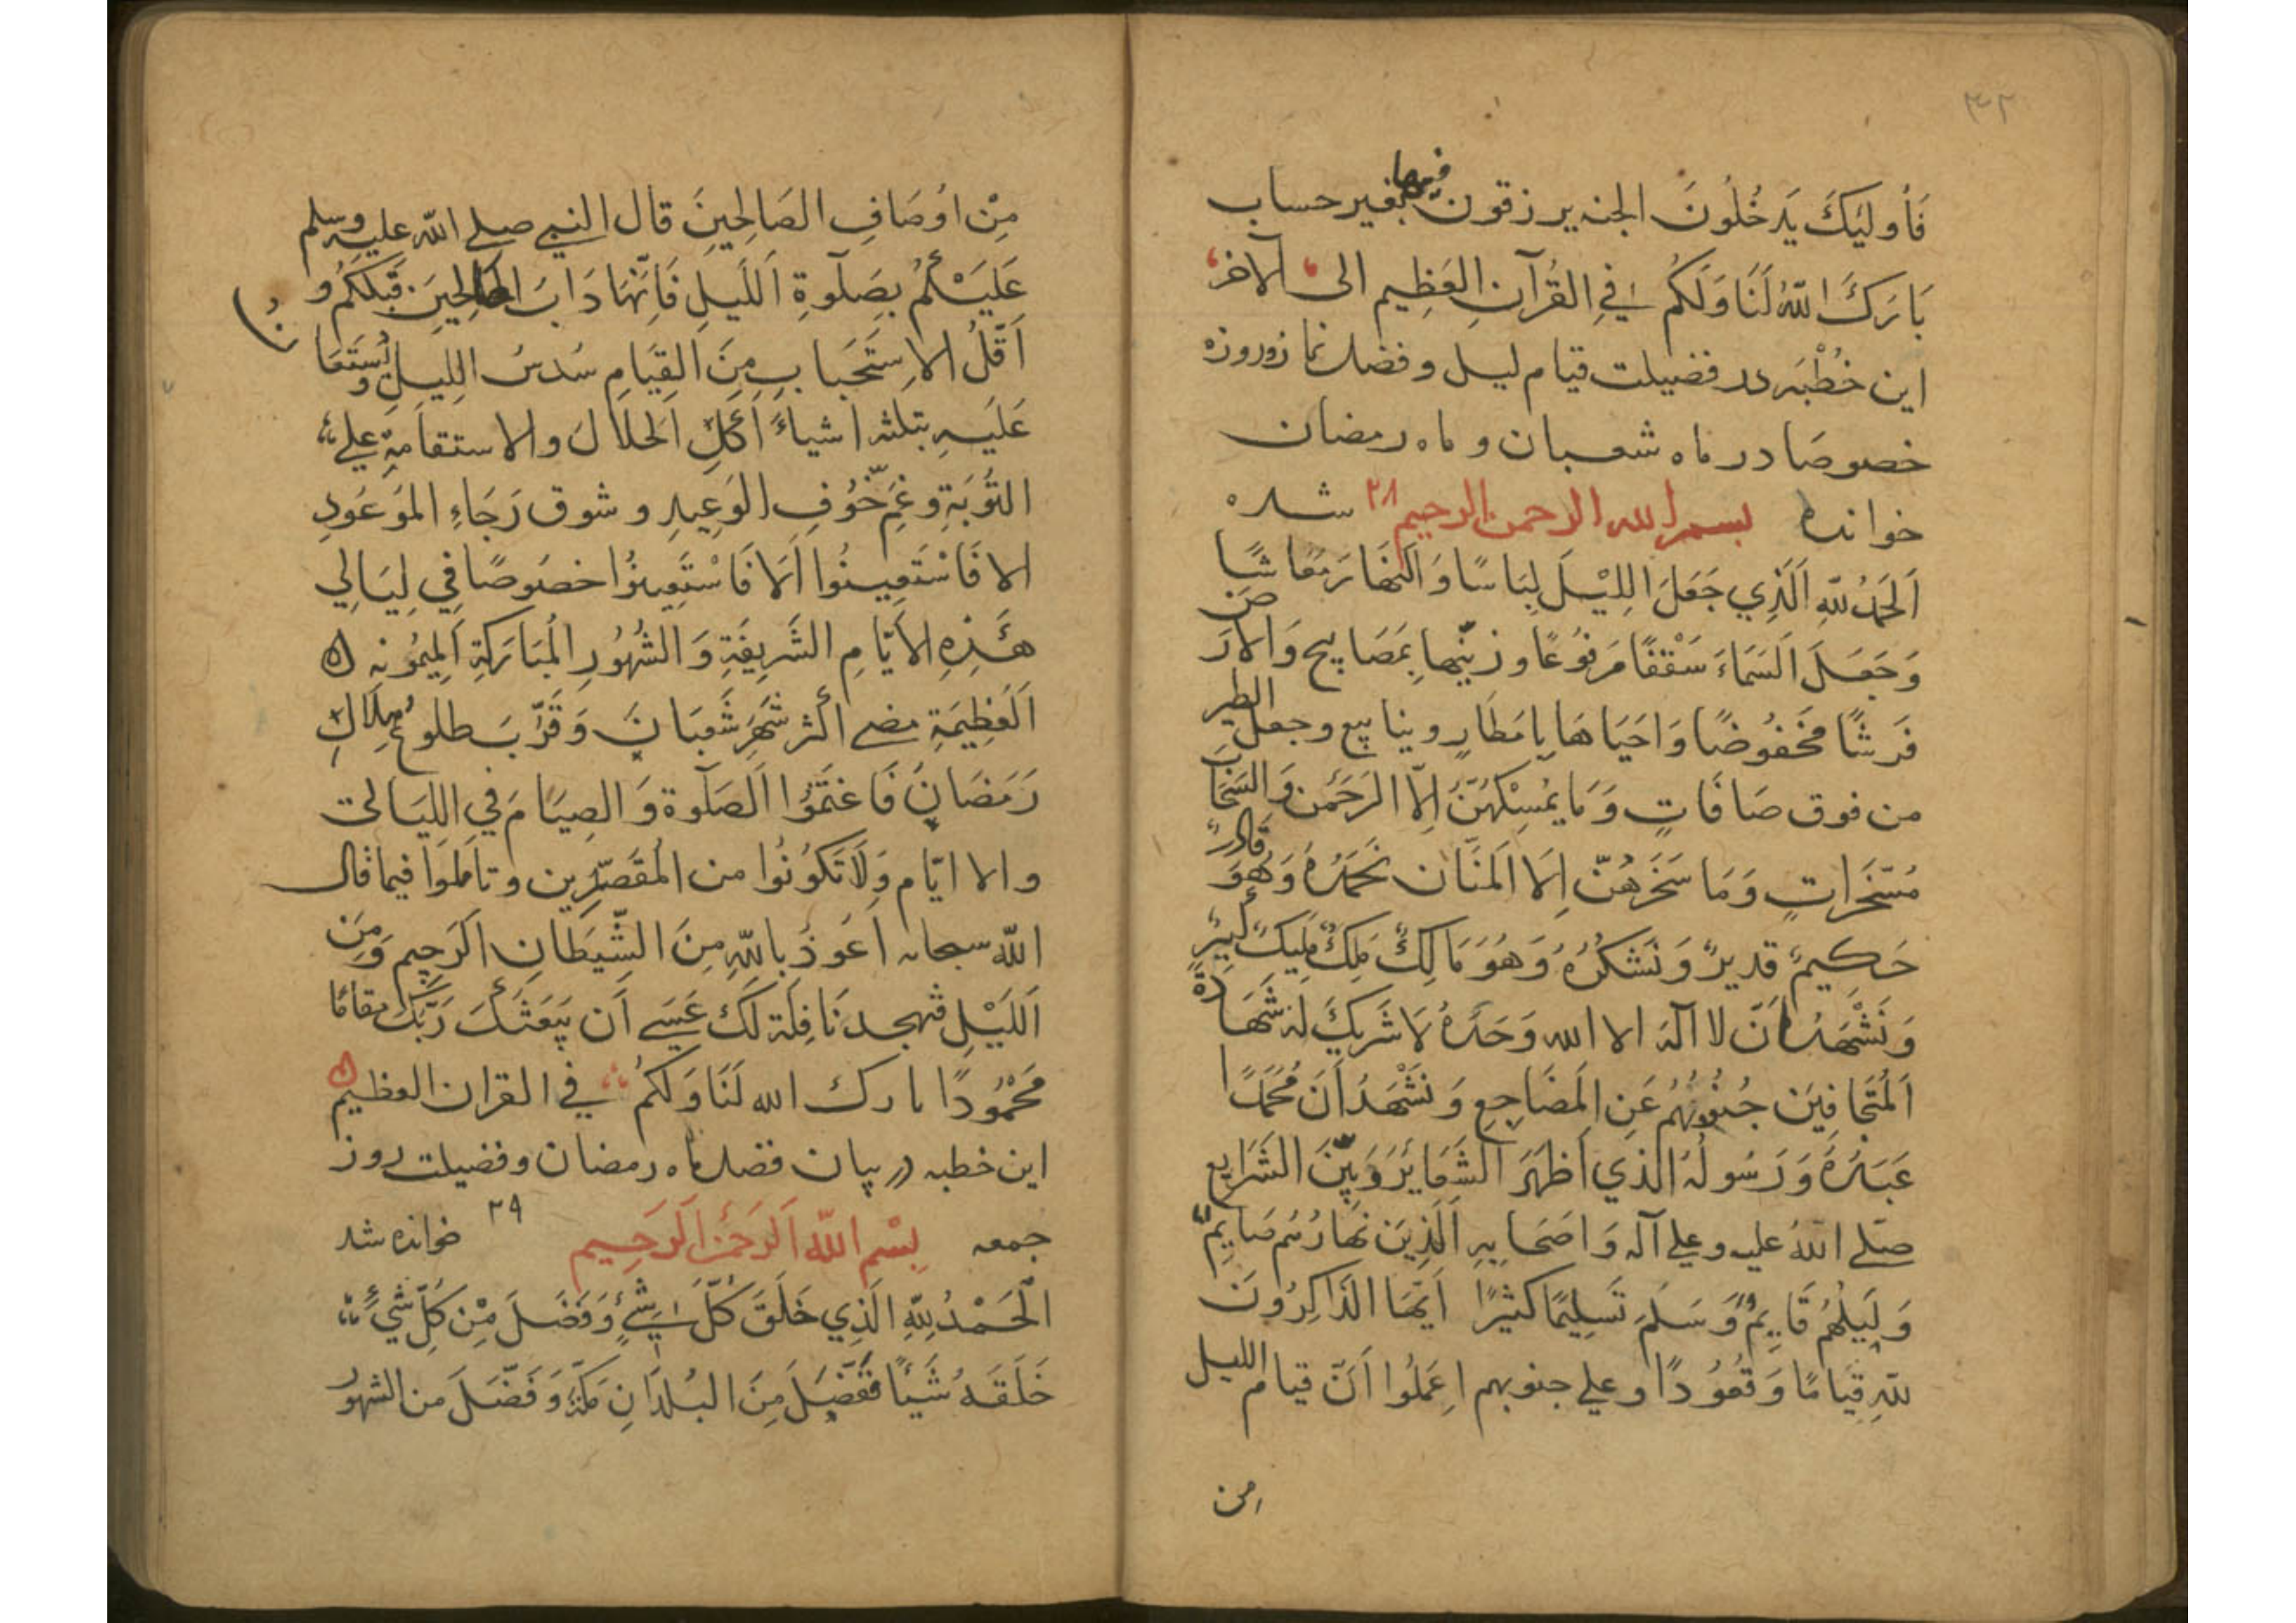 ٣٢
فَأُولَئِكَ يَدخُلُونَ الجنه يرزقون فيها بغير حساب
بَارَكَ اللّهُ لَنَا وَلَكُم فِي القُرآنِ العَظِيمِ الى الآخر
این خُطْبَه در فضیلت قیام لیل و فضل نماز و روزه
خصوصًا در ماه شعبان و ماه رمضان
خوانده بسم الله الرحمن الرحيم ٢٨ شده
اَلحَمدُ لِلّهِ اَلَّذِي جَعَلَ اللَيْلَ لِبَاسًا وَالنَهَارَ مَعَاشًا
وَجَعَلَ اَلسَمَاءَ سَقْفًا مَرفُوعًا وزيّنها بِمَصَابِيح وَالاَرضَ
فَرشًا مَخفُوضًا وَاحيَاهَا بِامَطَارٍ وينابيع وجعل الطير
من فوق صَافَاتٍ وَمَا يُمسِكهُنَّ اِلّا الرَحَمن وَالسَحَابَ
مُسَخَرَاتٍ وَمَا سَخَرهُنّ اِلَا المَنَّان نَحمَدُهُ وَهُوَ قَادِرٌ
حَكيمٌ قديرٌ وَنَشكُرُهُ وَهُوَ مَالِكٌ مَلِكٌ مَلِيكٌ كَبِيرٌ
وَنَشْهَدُ اَنّ لا اله الا الله وَحدَهُ لَا شَرِيكَ لهُ شَهَادَةَ
اَلمُتَجَافِينَ جُنُوبُهُم عَنِ المَضَاجِعِ وَنَشْهَدُ اَنَ مُحَمَدًا
عَبَدُهُ وَرَسُولُهُ الذي اَظهَرَ الشَعَايرَ وَبَيّنَ الشَرَايع
صلى اللهُ عليه وعلى آله وَاصَحابِهِ اَلَّذِينَ نهارُهُم صَايِمٌ
وَلَيلُهُم قَايِمٌ وَسَلَمَ تَسلِيمًا كثيرًا اَيُّهَا الذَاكِرُونَ
للهِ قِيَامًا وَقُعُودًا وعلى جنوبهم اِعَلمُوا اَنّ قيام الليل
من
مِنْ اوُصَافِ الصَالِحِينَ قال النبي صلى الله عليه وسلم
عَلَيْكُم بِصَلوةِ اَللَيلِ فَاِنّهَا دَابَ الصالِحِينَ قَبلَكُم و
اَقَلُّ الاِستِحَبابِ مِنَ القِيَامِ سُدسُ اللَيلِ و يُستَعَا
عَلَيهِ بثلثه اشياءَ اَكلِ الحَلالَ والاستقامَةِ على
التَوُبَةِ وغَمِّ خَوُفِ الوَعِيدِ وشوق رَجَاءِ المَوعَودِ
الا فَاسْتَعِينُوا اَلَا فَاسْتَعِينُوا خصوصًا فِي لِيَالِي
هَذِهِ الاَيّامِ الشَرِيفَةِ وَالشُهُورِ المُبَارَكَةِ اَلمَيمُونه
اَلعَظِيمَةِ مضى اكثر شَهرِ شَعبَانَ وَقَرَّبَ طلوع هِلَالِ
رَمَضَانِ فَاغتَنِمُوا الَصَلوة وَالصِيَامَ فِي اللَيَالي
والاايّام وَلَا تَكوُنُوا من المُقَصّرِين وتاملوا فيما قال
الله سبحانه اَعَوذُ بِاللهِ مِنَ الشَيطَانِ الرَجِيم وَمِنَ
اَللَيْلِ فتهجد نَافِلَة لَكَ عَسَى اَن يَبعَثَكَ رَبّكَ مقامًا
مَحمُودًا بارك الله لَنَا وَلكُم في القران العظيم
این خطبه در بیان فضل ماه رمضان و فضیلت روز
جمعه بِسْمِ اللهِ اَلرَحَمنِ اَلرَحِيم ٢٩ خوانده شد
الَحَمْدُ لِلّهِ الَذِي خَلَقَ كُلَّ شَيءٍ وَفَضَلَ مِن كُلِّ شَيءٍ
خَلَقَهُ شَيئًا فَفَضّلَ مِنَ البُلدَانِ مَكّةَ وَفَضّلَ من الشهور